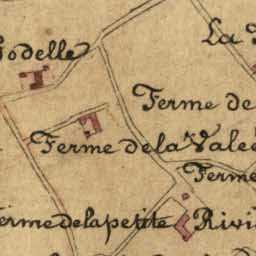 odelle
La
Ferme de
Ferme de la Valeé
Ferme
erme de la petite Rivi